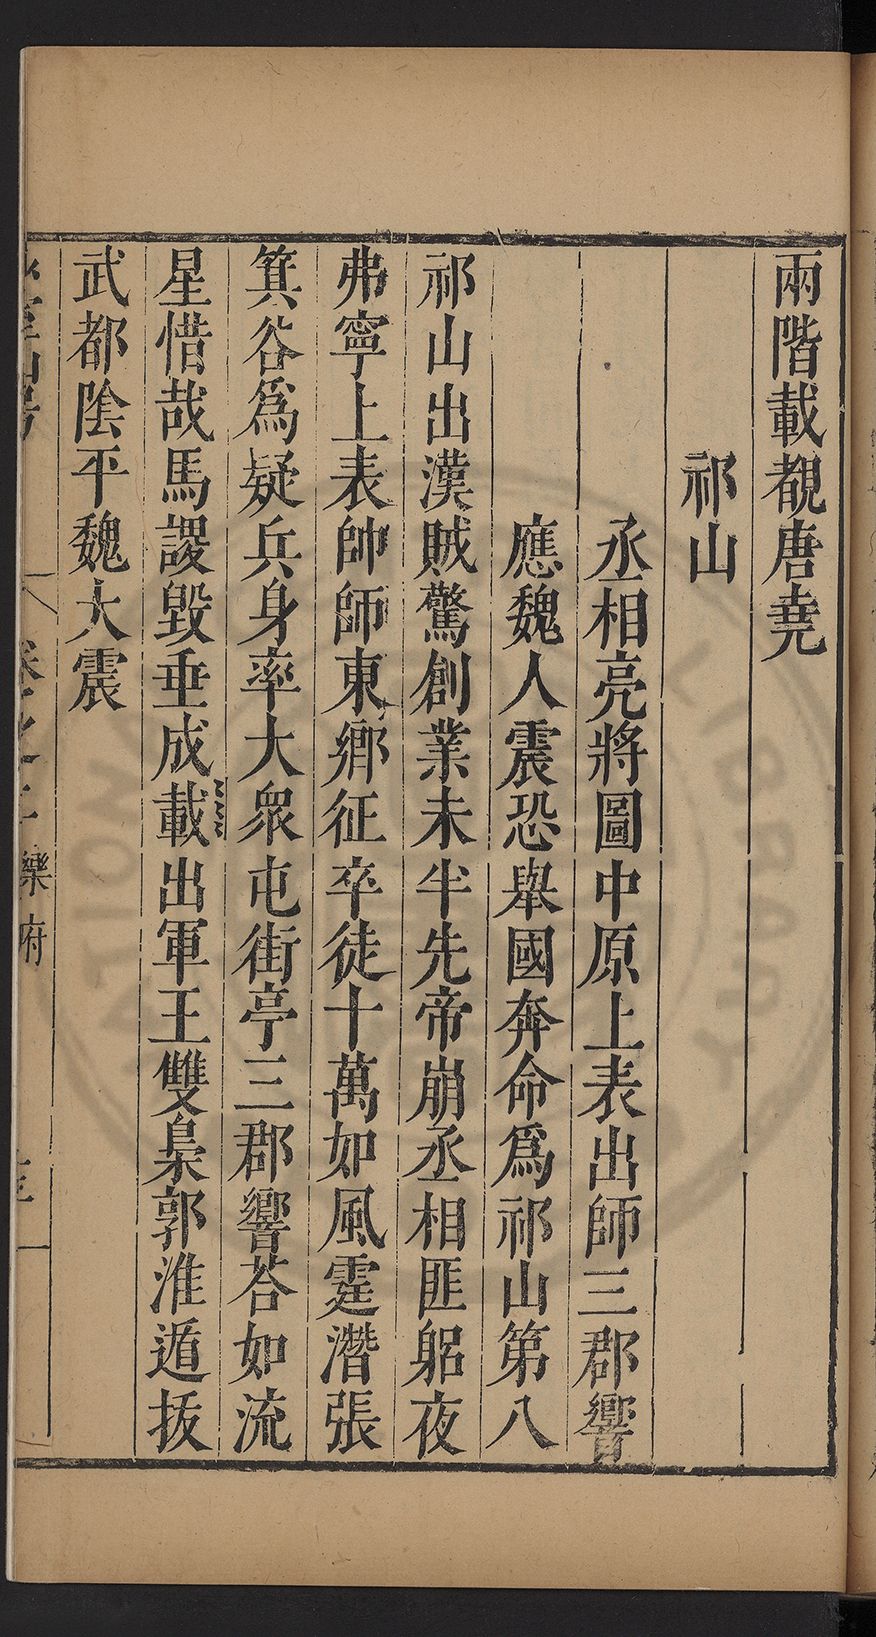 兩階載覩唐堯
祁山
丞相亮將圖中原上表出師三郡響
應魏人震恐舉國奔命爲祁山第八
祁山出漢賊驚創業未半先帝崩丞相匪躬夜
弗寧上表帥師東鄉征卒徒十萬如風霆濳張
箕谷爲疑兵身率大衆屯街亭三郡響荅如流
星惜哉馬謖毀垂成載出軍王雙梟郭淮遁拔
武都陰平魏大震
樂府